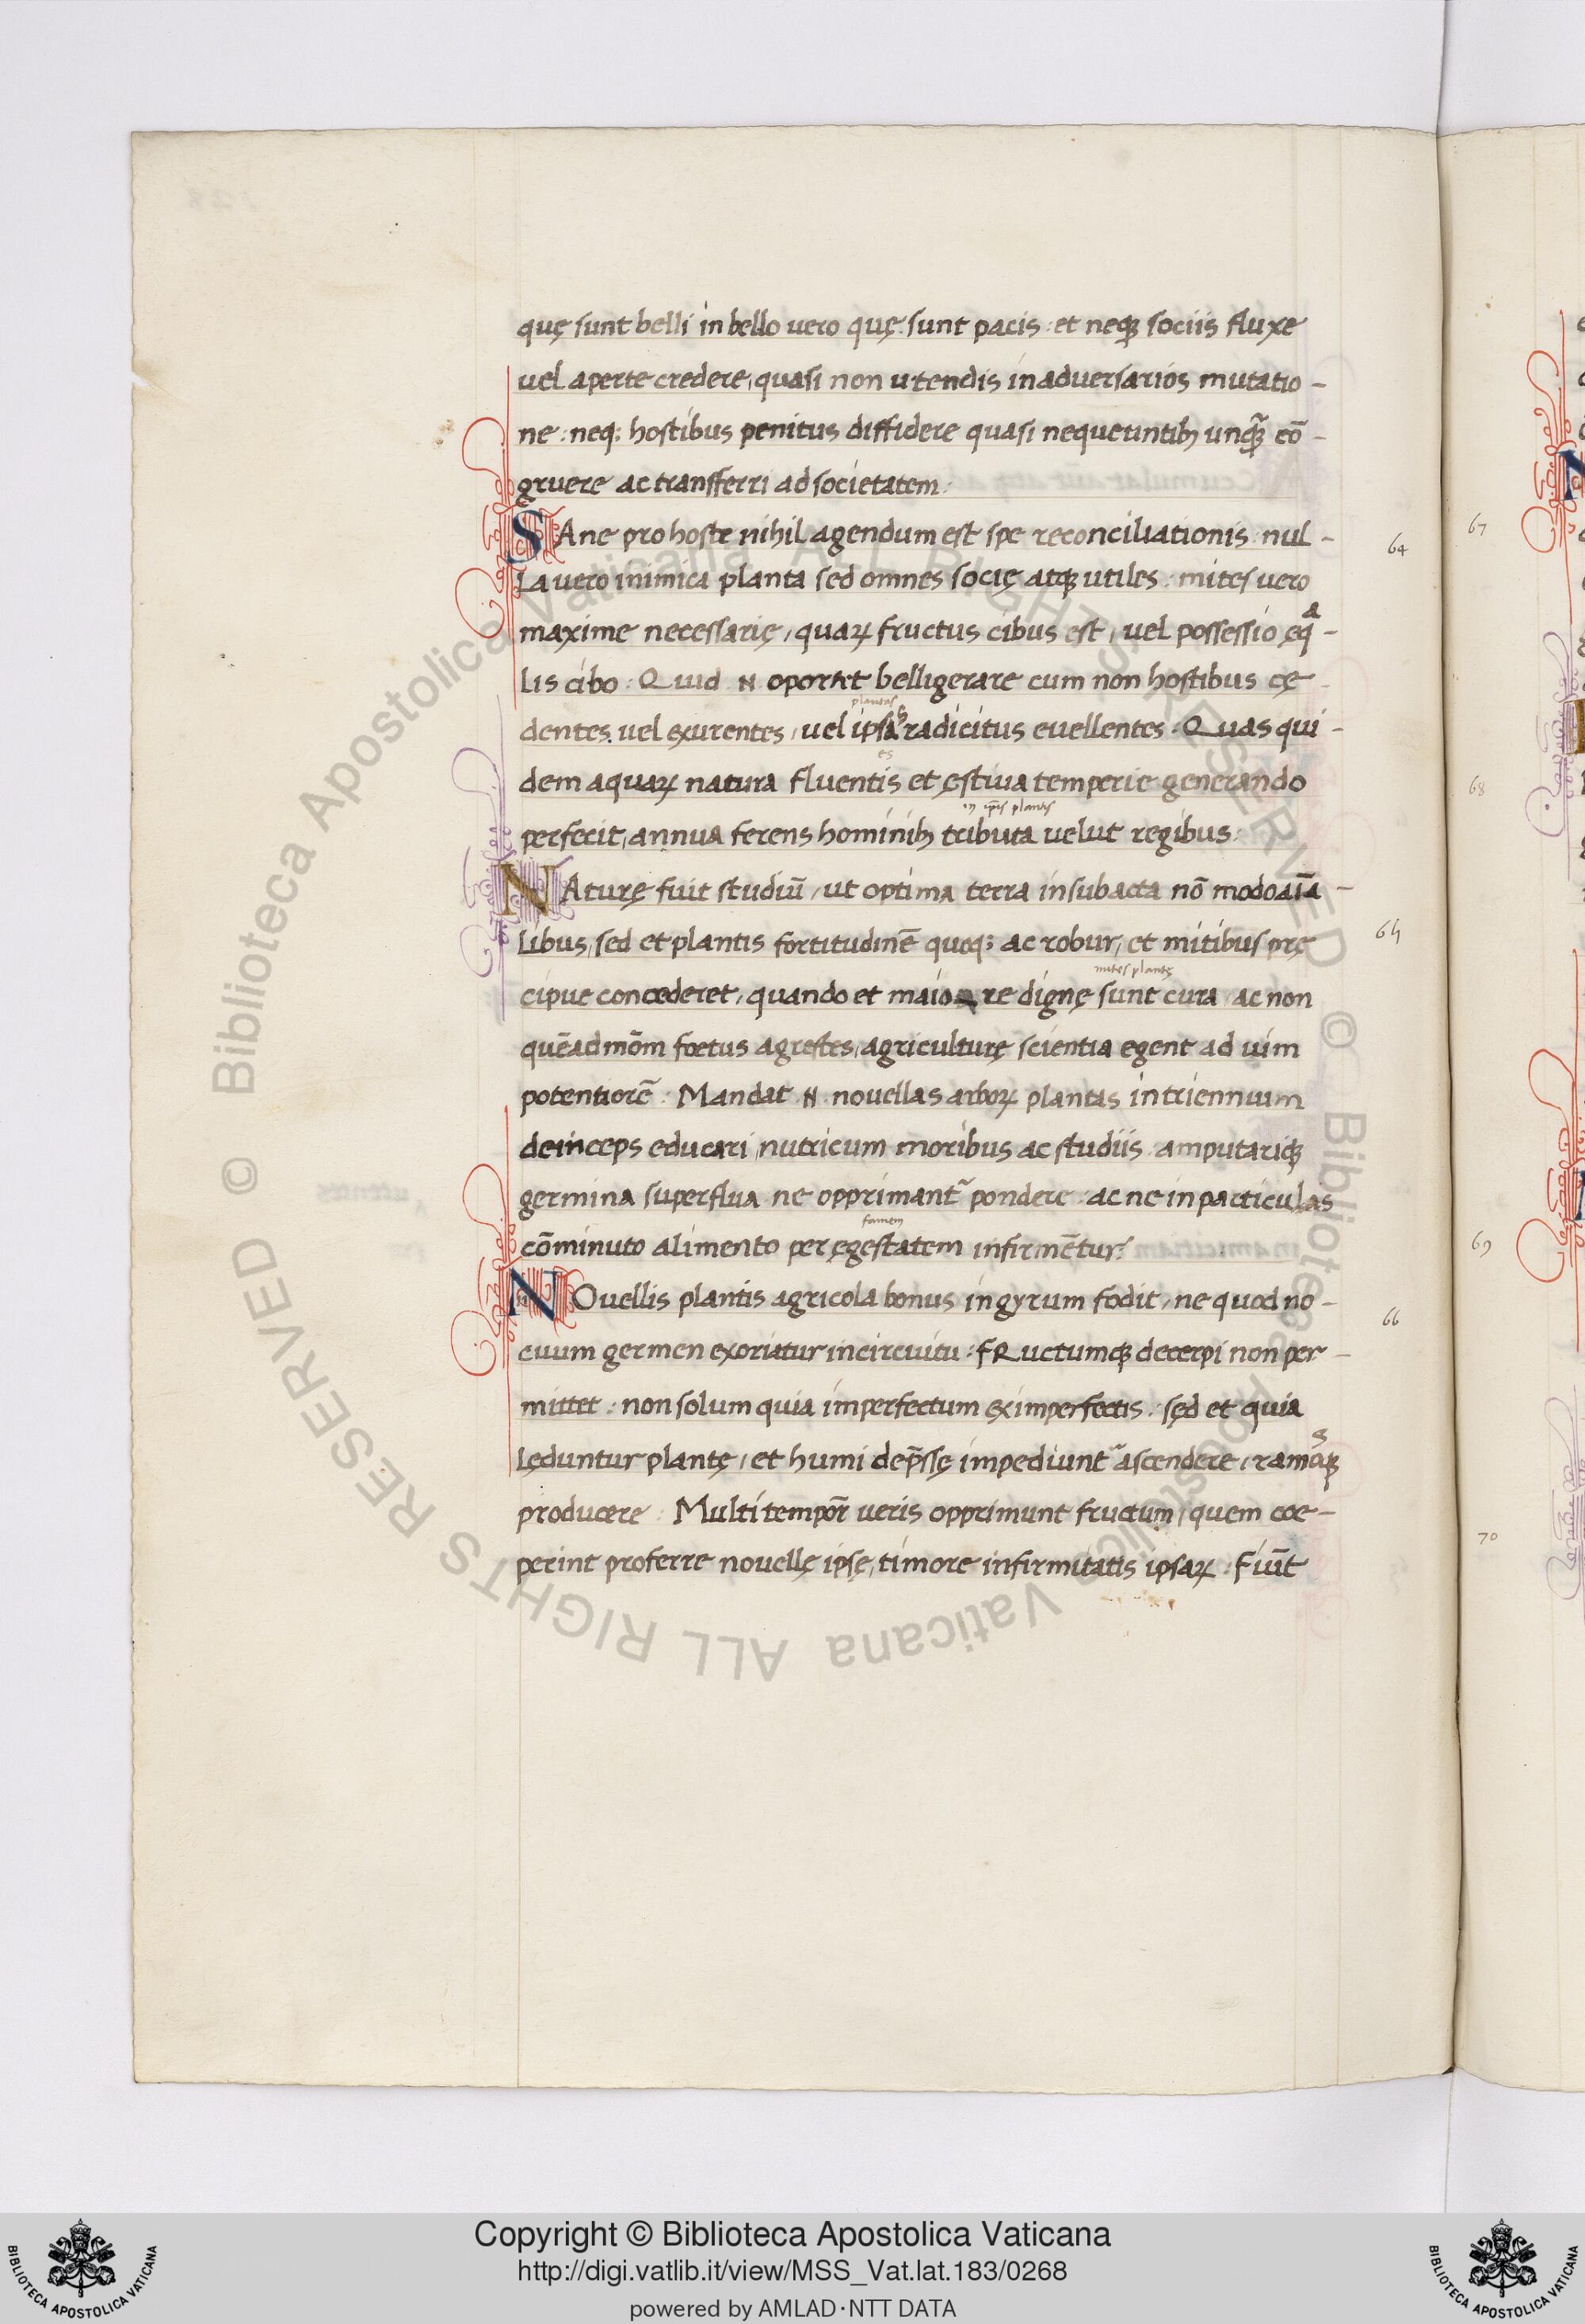 quę sunt belli in bello uero quę sunt pacis : et neqꝫ sociis fluxe
uel aperte credere, quasi non utendis in adversarios mutatio -
ne : neqꝫ hostibus penitus diffidere quasi nequeuntibꝫ unqᷓ cō -
gruere ac transferri ad societatem :
SAne pro hoste nihil agendum est spe reconciliationis : nul -
64
La uero inimica planta sed omnes socię atqꝫ utiles : mites uero
maxime necessarię, quaꝝ fructus cibus est, uel possessio ęqᵃ -
lis cibo : Quid N oportet belligerare cum non hostibus cę
plantas
dentes uel exurentes, uel ipsas radicitus euellentes : Quas qui -
es
dem aquaꝝ natura fluentis et ęstiua temperie generando
in ip̄is plantis
perfecit, annua ferens hominibꝫ tributa uelut regibus :
NAturę fuit studiū, ut optima terra insubacta nō modo aīa -
Libus, sed et plantis fortitudinē quoqꝫ ac robur, et mitibus prę
65
mites plantę
cipue concederet, quando et maiore dignę sunt cura ac non
quēadmōm foetus agrestes, agriculturę scientia egent ad uim
potentiorē : Mandat N novellas arboꝝ plantas in triennium
deinceps educari, nutricum moribus ac studiis amputariqꝫ
germina superflua ne opprimant᷑ pondere : ac ne in particulas
famem
cōminuto alimento per ęgestatem infirmētur :
NOuellis plantis agricola bonus in gyrum fodit, ne quod no -
66
cuum germen exoriatur in circuitu : FRuctumqꝫ decerpi non per -
mittet : non solum quia imperfectum ex imperfectis : sed et quia
Lęduntur plantę, et humi dep̄ssę impediunt᷑ ascendere, ramosqꝫ
producere : Multi tempoꝝ ueris opprimunt fructum, quem coe -
perint proferre nouellę ipsę, timore infirmitatis ipsaꝝ : Fiūt
67
68
69
70
Copyright © Biblioteca Apostolica Vaticana
http://digi.vatlib.it/view/MSS_Vat.lat.183/0268
powered by AMLAD·NTT DATA
BIBLIOTECA APOSTOLICA VATICANA
BIBLIOTECA APOSTOLICA VATICANA
© Biblioteca Apostolica Vaticana ALL RIGHTS RESERVED © Biblioteca Apostolica Vaticana ALL RIGHTS RESERVED